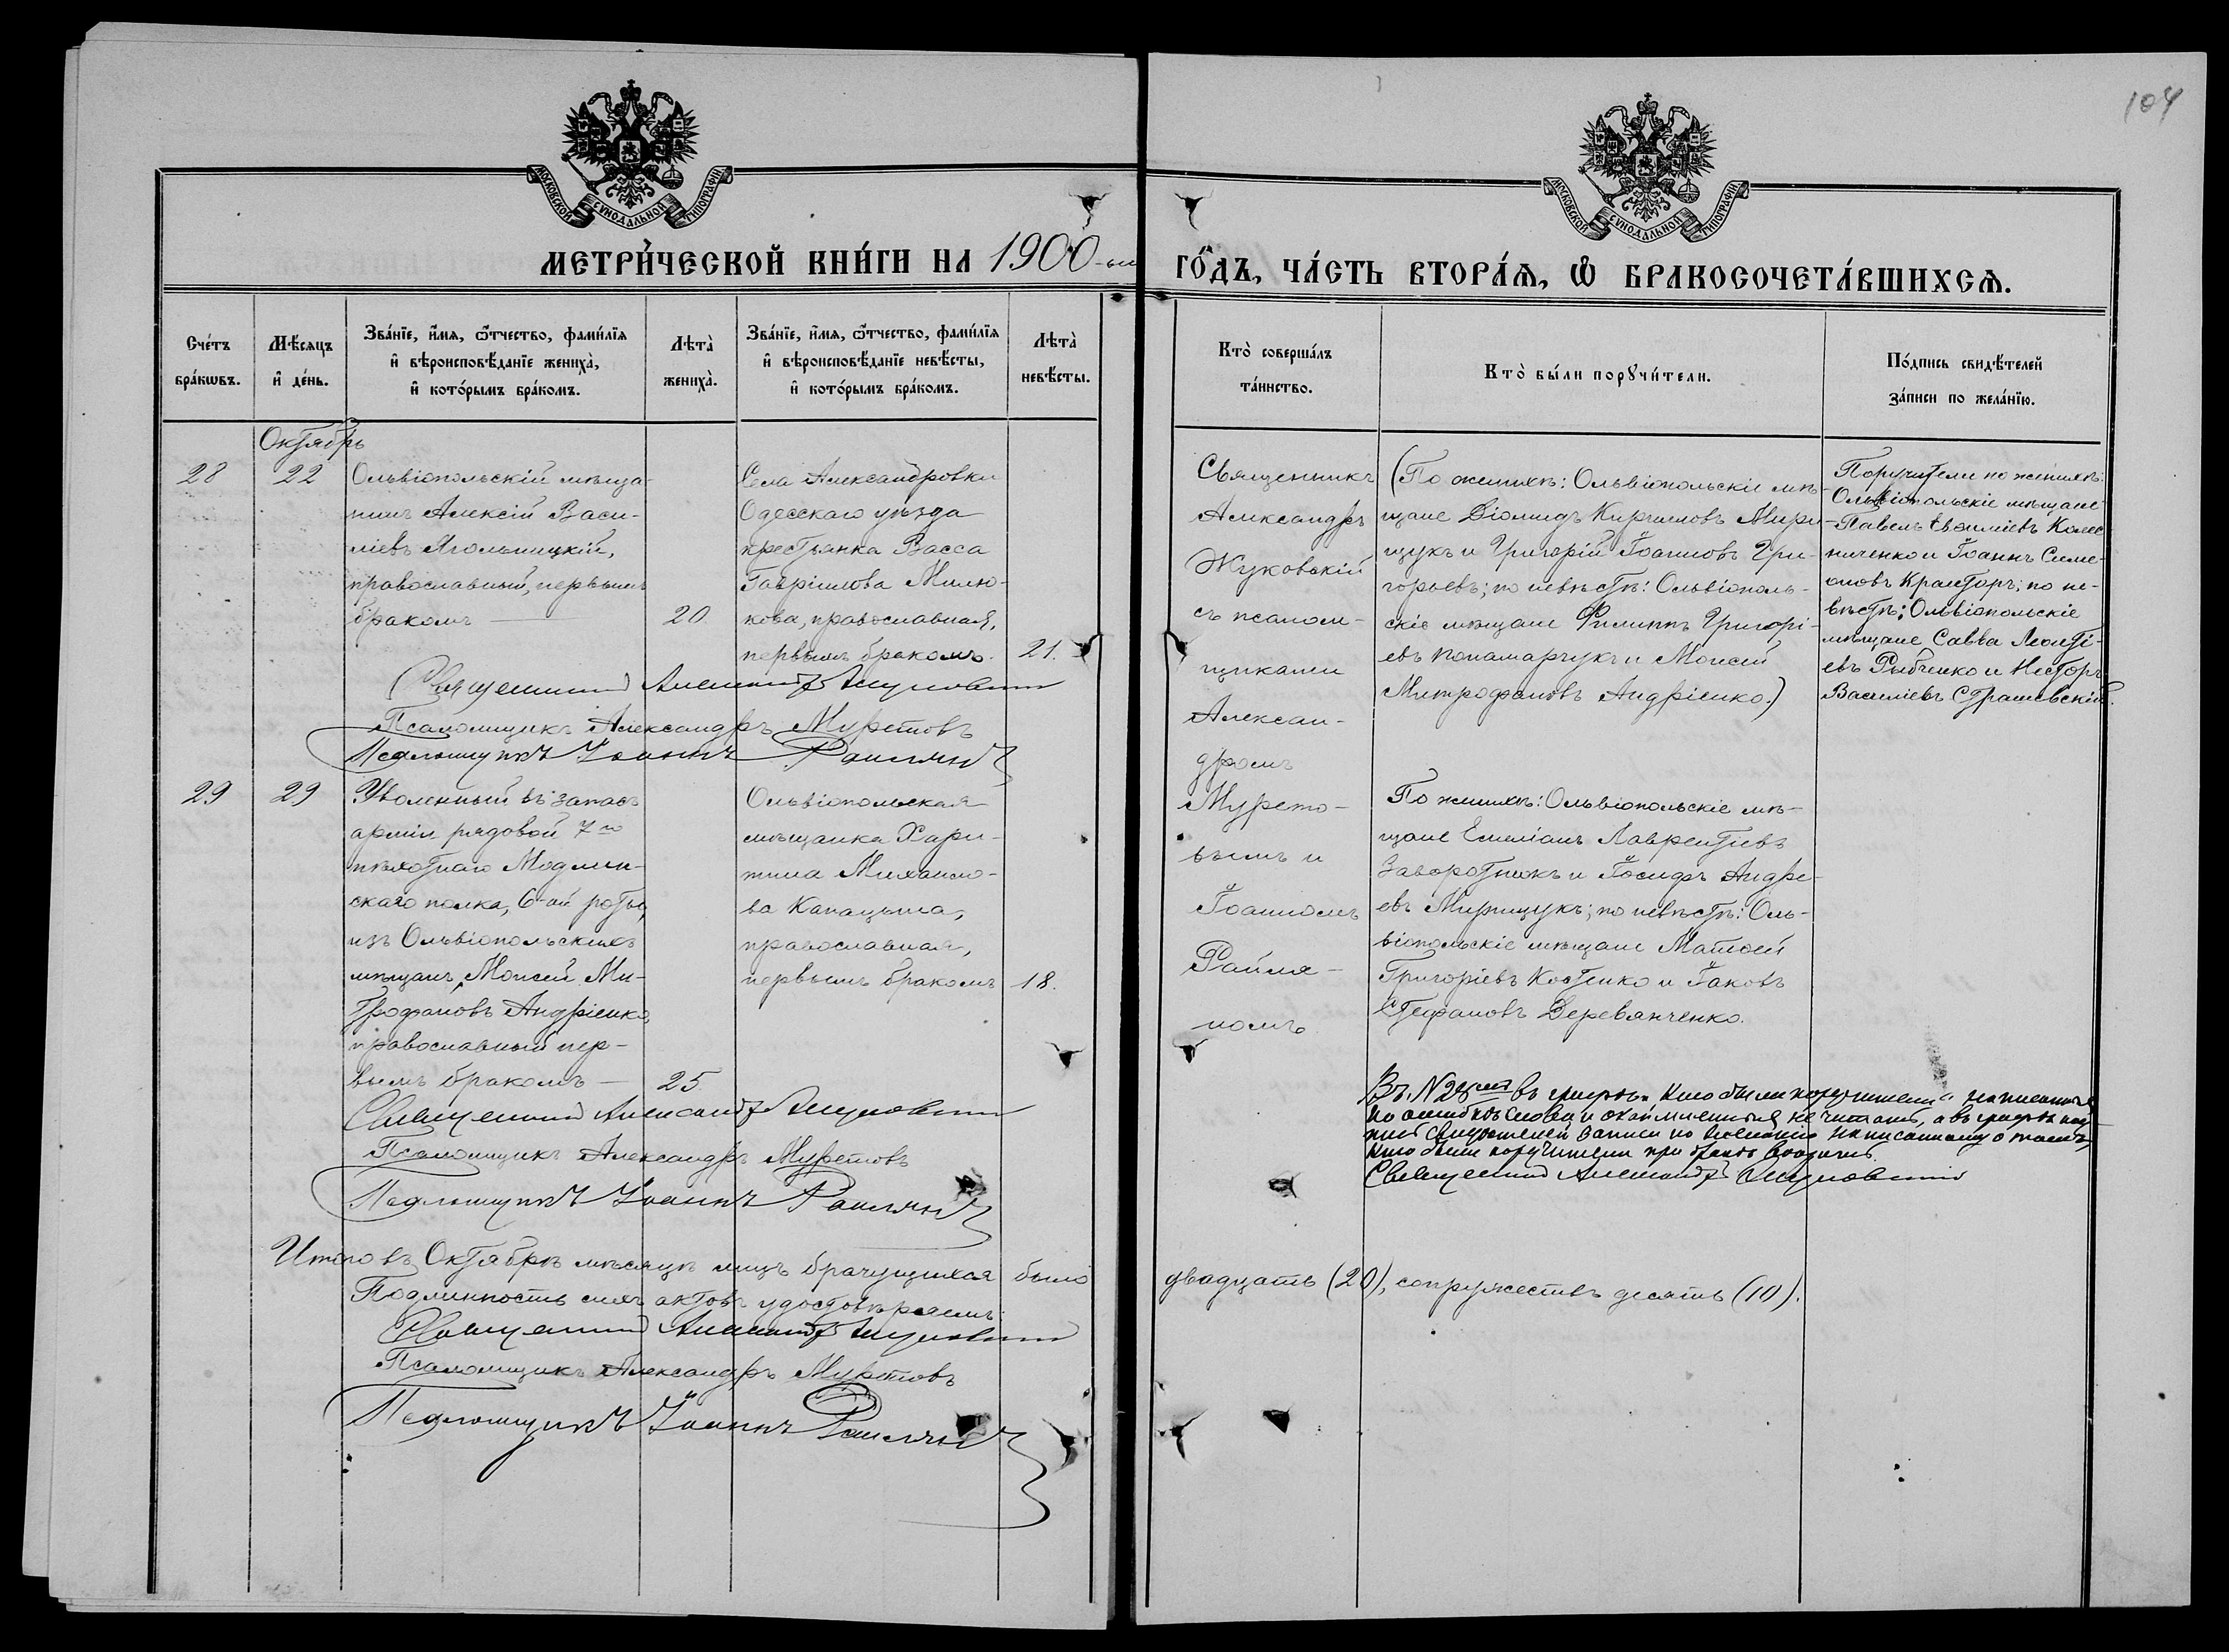 104
МОСКОВСКОЙ СУНОДАЛЬНОЙ ТИПОГРАФІИ
МОСКОВСКОЙ СУНОДАЛЬНОЙ ТИПОГРАФІИ
МЕТРИ́ЧЕСКОЙ КНИ́ГИ НА 1900-ый
ГО́ДЪ, ЧА́СТЬ ВТОРА́Ѧ, Ѡ БРАКОСОЧЕТА́ВШИХСѦ.
Сче́тъ
бра́кѡвъ.
Мѣ́сяцъ
и де́нь.
Зва́нїе, и́мя, ѻ́тчество, фами́лїя
и вѣроисповѣ́данїе жениха̀,
и кото́рымъ бра́комъ.
Лѣта̀
жениха̀.
Зва́нїе, и́мя, ѻ́тчество, фами́лїя
и вѣроисповѣ́данїе невѣ́сты,
и кото́рымъ бра́комъ.
Лѣта̀
невѣ́сты.
Кто̀ соверша́лъ
та́инство.
Кто̀ бы́ли порꙋчи́тели.
По́дпись свидѣ́телей
за́писи по жела́нїю.
Октябрь
28
22
Ольвіопольскій мѣща-
нинъ Алексій Васи-
ліевъ Ягольницкій,
православный, первымъ
бракомъ —
20
Села Александровки
Одесскаго уѣзда
крестьянка Васса
Гавріилова Милю-
кова, православная,
первымъ бракомъ.
21.
Священникъ
Александръ
Жуковскій
съ псалом-
щиками
Алексан-
дромъ
Мурето-
вымъ и
Іоанномъ
Райля-
номъ
(По женихѣ: Ольвіопольскіе мѣ-
щане Діомидъ Кирилловъ Мири-
щукъ и Григорій Іоанновъ Гри-
горьевъ; по невѣстѣ: Ольвіополь-
скіе мѣщане Филиппъ Григорі-
евъ Понамарчукъ и Моисей
Митрофановъ Андріенко.)
Поручители по женихѣ:
Ольвіопольскіе мѣщане
Павелъ Евѳиміевъ Колес
ниченко и Іоаннъ Симе-
оновъ Кранторъ; по не-
вѣстѣ: Ольвіопольскіе
мѣщане Савва Леонті-
евъ Рыбченко и Несторъ
Василіевъ Страшевскій.
Священникъ Александръ Жуковскій
Псаломщикъ Александръ Муретовъ
Псаломщикъ Іоаннъ Райлянъ
29
29
Уволенный въ запасъ
арміи рядовой 7го
пѣхотнаго Модлин-
скаго полка, 6-ой роты,
изъ Ольвіопольскихъ
мѣщанъ, Моисей Ми-
трофановъ Андріенко,
православный пер-
вымъ бракомъ —
25
Ольвіопольская
мѣщанка Хари-
тина Михаило-
ва Капацына,
православная,
первымъ бракомъ
18.
По женихѣ: Ольвіопольскіе мѣ-
щане Емиліанъ Лаврентіевъ
Заворотнюкъ и Іосифъ Андре-
евъ Мирищукъ; по невѣстѣ: Оль-
віопольскіе мѣщане Матѳей
Григоріевъ Костенко и Іаковъ
Стефановъ Деревянченко.
Священникъ Александръ Жуковскій
Псаломщикъ Александръ Муретовъ
Псаломщикъ Іоаннъ Райлянъ
Въ N 28 въ графѣ „Кто были поручители" написанныя
по ошибкѣ слова и окаймленныя не читать, а въ графѣ под
пись свидѣтелей записи по желанію написанному о томъ,
кто были поручители при бракѣ
Священникъ Александръ Жуковскій
Итого въ Октябрѣ мѣсяцѣ лицъ брачущихся было двадцать (20), супружествъ десять (10).
Подлинность сихъ актовъ удостовѣряемъ:
Священникъ Александръ Жуковскій
Псаломщикъ Александръ Муретовъ
Псаломщикъ Іоаннъ Райлянъ